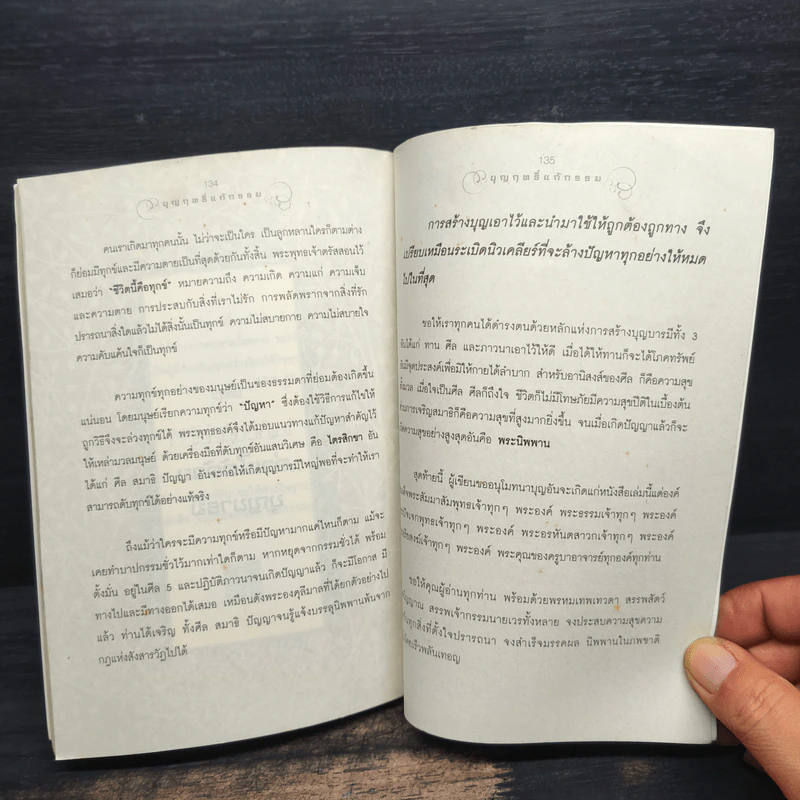 134
บุญฤทธิ์แก้กรรม
คนเราเกิดมาทุกคนนั้น ไม่ว่าจะเป็นใคร เป็นลูกหลานใครก็ตามต่าง
ก็ย่อมมีทุกข์และมีความตายเป็นที่สุดด้วยกันทั้งสิ้น พระพุทธเจ้าตรัสสอนไว้
เสมอว่า "ชีวิตนี้คือทุกข์" หมายความถึง ความเกิด ความแก่ ความเจ็บ
และความตาย การประสบกับสิ่งที่เราไม่รัก การพลัดพรากจากสิ่งที่รัก
ปรารถนาสิ่งใดแล้วไม่ได้สิ่งนั้นเป็นทุกข์ ความไม่สบายกาย ความไม่สบายใจ
ความคับแค้นใจก็เป็นทุกข์
ความทุกข์ทุกอย่างของมนุษย์เป็นของธรรมดาที่ย่อมต้องเกิดขึ้น
แน่นอน โดยมนุษย์เรียกความทุกข์ว่า "ปัญหา" ซึ่งต้องใช้วิธีการแก้ไขให้
ถูกวิธีจึงจะล่วงทุกข์ได้ พระพุทธองค์จึงได้มอบแนวทางแก้ปัญหาสำคัญไว้
ให้เหล่ามวลมนุษย์ ด้วยเครื่องมือที่ดับทุกข์อันแสนวิเศษ คือ ไตรสิกขา อัน
ได้แก่ ศีล สมาธิ ปัญญา อันจะก่อให้เกิดบุญบารมีใหญ่พอที่จะทำให้เรา
สามารถดับทุกข์ได้อย่างแท้จริง
ถึงแม้ว่าใครจะมีความทุกข์หรือมีปัญหามากแค่ไหนก็ตาม แม้จะ
เคยทำบาปกรรมชั่วไว้มากเท่าใดก็ตาม หากหยุดจากกรรมชั่วได้ พร้อม
ตั้งมั่น อยู่ในศีล 5 และปฏิบัติภาวนาจนเกิดปัญญาแล้ว ก็จะมีโอกาส มี
ทางไปและมีทางออกได้เสมอ เหมือนดังพระองคุลีมาลที่ได้ยกตัวอย่างไป
แล้ว ท่านได้เจริญ ทั้งศีล สมาธิ ปัญญาจนรู้แจ้งบรรลุนิพพานพ้นจาก
กฎแห่งสังสารวัฏไปได้
135
บุญฤทธิ์แก้กรรม
การสร้างบุญเอาไว้และนำมาใช้ให้ถูกต้องถูกทาง จึง
เปรียบเหมือนระเบิดนิวเคลียร์ที่จะล้างปัญหาทุกอย่างให้หมด
ไปในที่สุด
ขอให้เราทุกคนได้ดำรงตนด้วยหลักแห่งการสร้างบุญบารมีทั้ง 3
อันได้แก่ ทาน ศีล และภาวนาเอาไว้ให้ดี เมื่อได้ให้ทานก็จะได้โภคทรัพย์
มีจุดประสงค์เพื่อมิให้กายได้ลำบาก สำหรับอานิสงส์ของศีล ก็คือความสุข
เมื่อใจเป็นศีล ศีลก็ถึงใจ ชีวิตก็ไม่มีโทษภัยมีความสุขปีติในเบื้องต้น
การเจริญสมาธิก็คือความสุขที่สูงมากยิ่งขึ้น จนเมื่อเกิดปัญญาแล้วก็จะ
ความสุขอย่างสูงสุดอันคือ พระนิพพาน
สุดท้ายนี้ ผู้เขียนขออนุโมทนาบุญอันจะเกิดแก่หนังสือเล่มนี้แด่องค์
พระสัมมาสัมพุทธเจ้าทุกๆ พระองค์ พระธรรมเจ้าทุกๆ พระองค์
พระปัจเจกพุทธเจ้าทุกๆ พระองค์ พระอรหันตสาวกเจ้าทุกๆ พระองค์
เจ้าทุกๆ พระองค์ พระคุณของครูบาอาจารย์ทุกองค์ทุกท่าน
ขอให้คุณผู้อ่านทุกท่าน พร้อมด้วยพรหมเทพเทวดา สรรพสัตว์
วิญญาณ สรรพเจ้ากรรมนายเวรทั้งหลาย จงประสบความสุขความ
ทุกสิ่งที่ตั้งใจปรารถนา จงสำเร็จมรรคผล นิพพานในภพชาติ
โดยเร็วพลันเทอญ